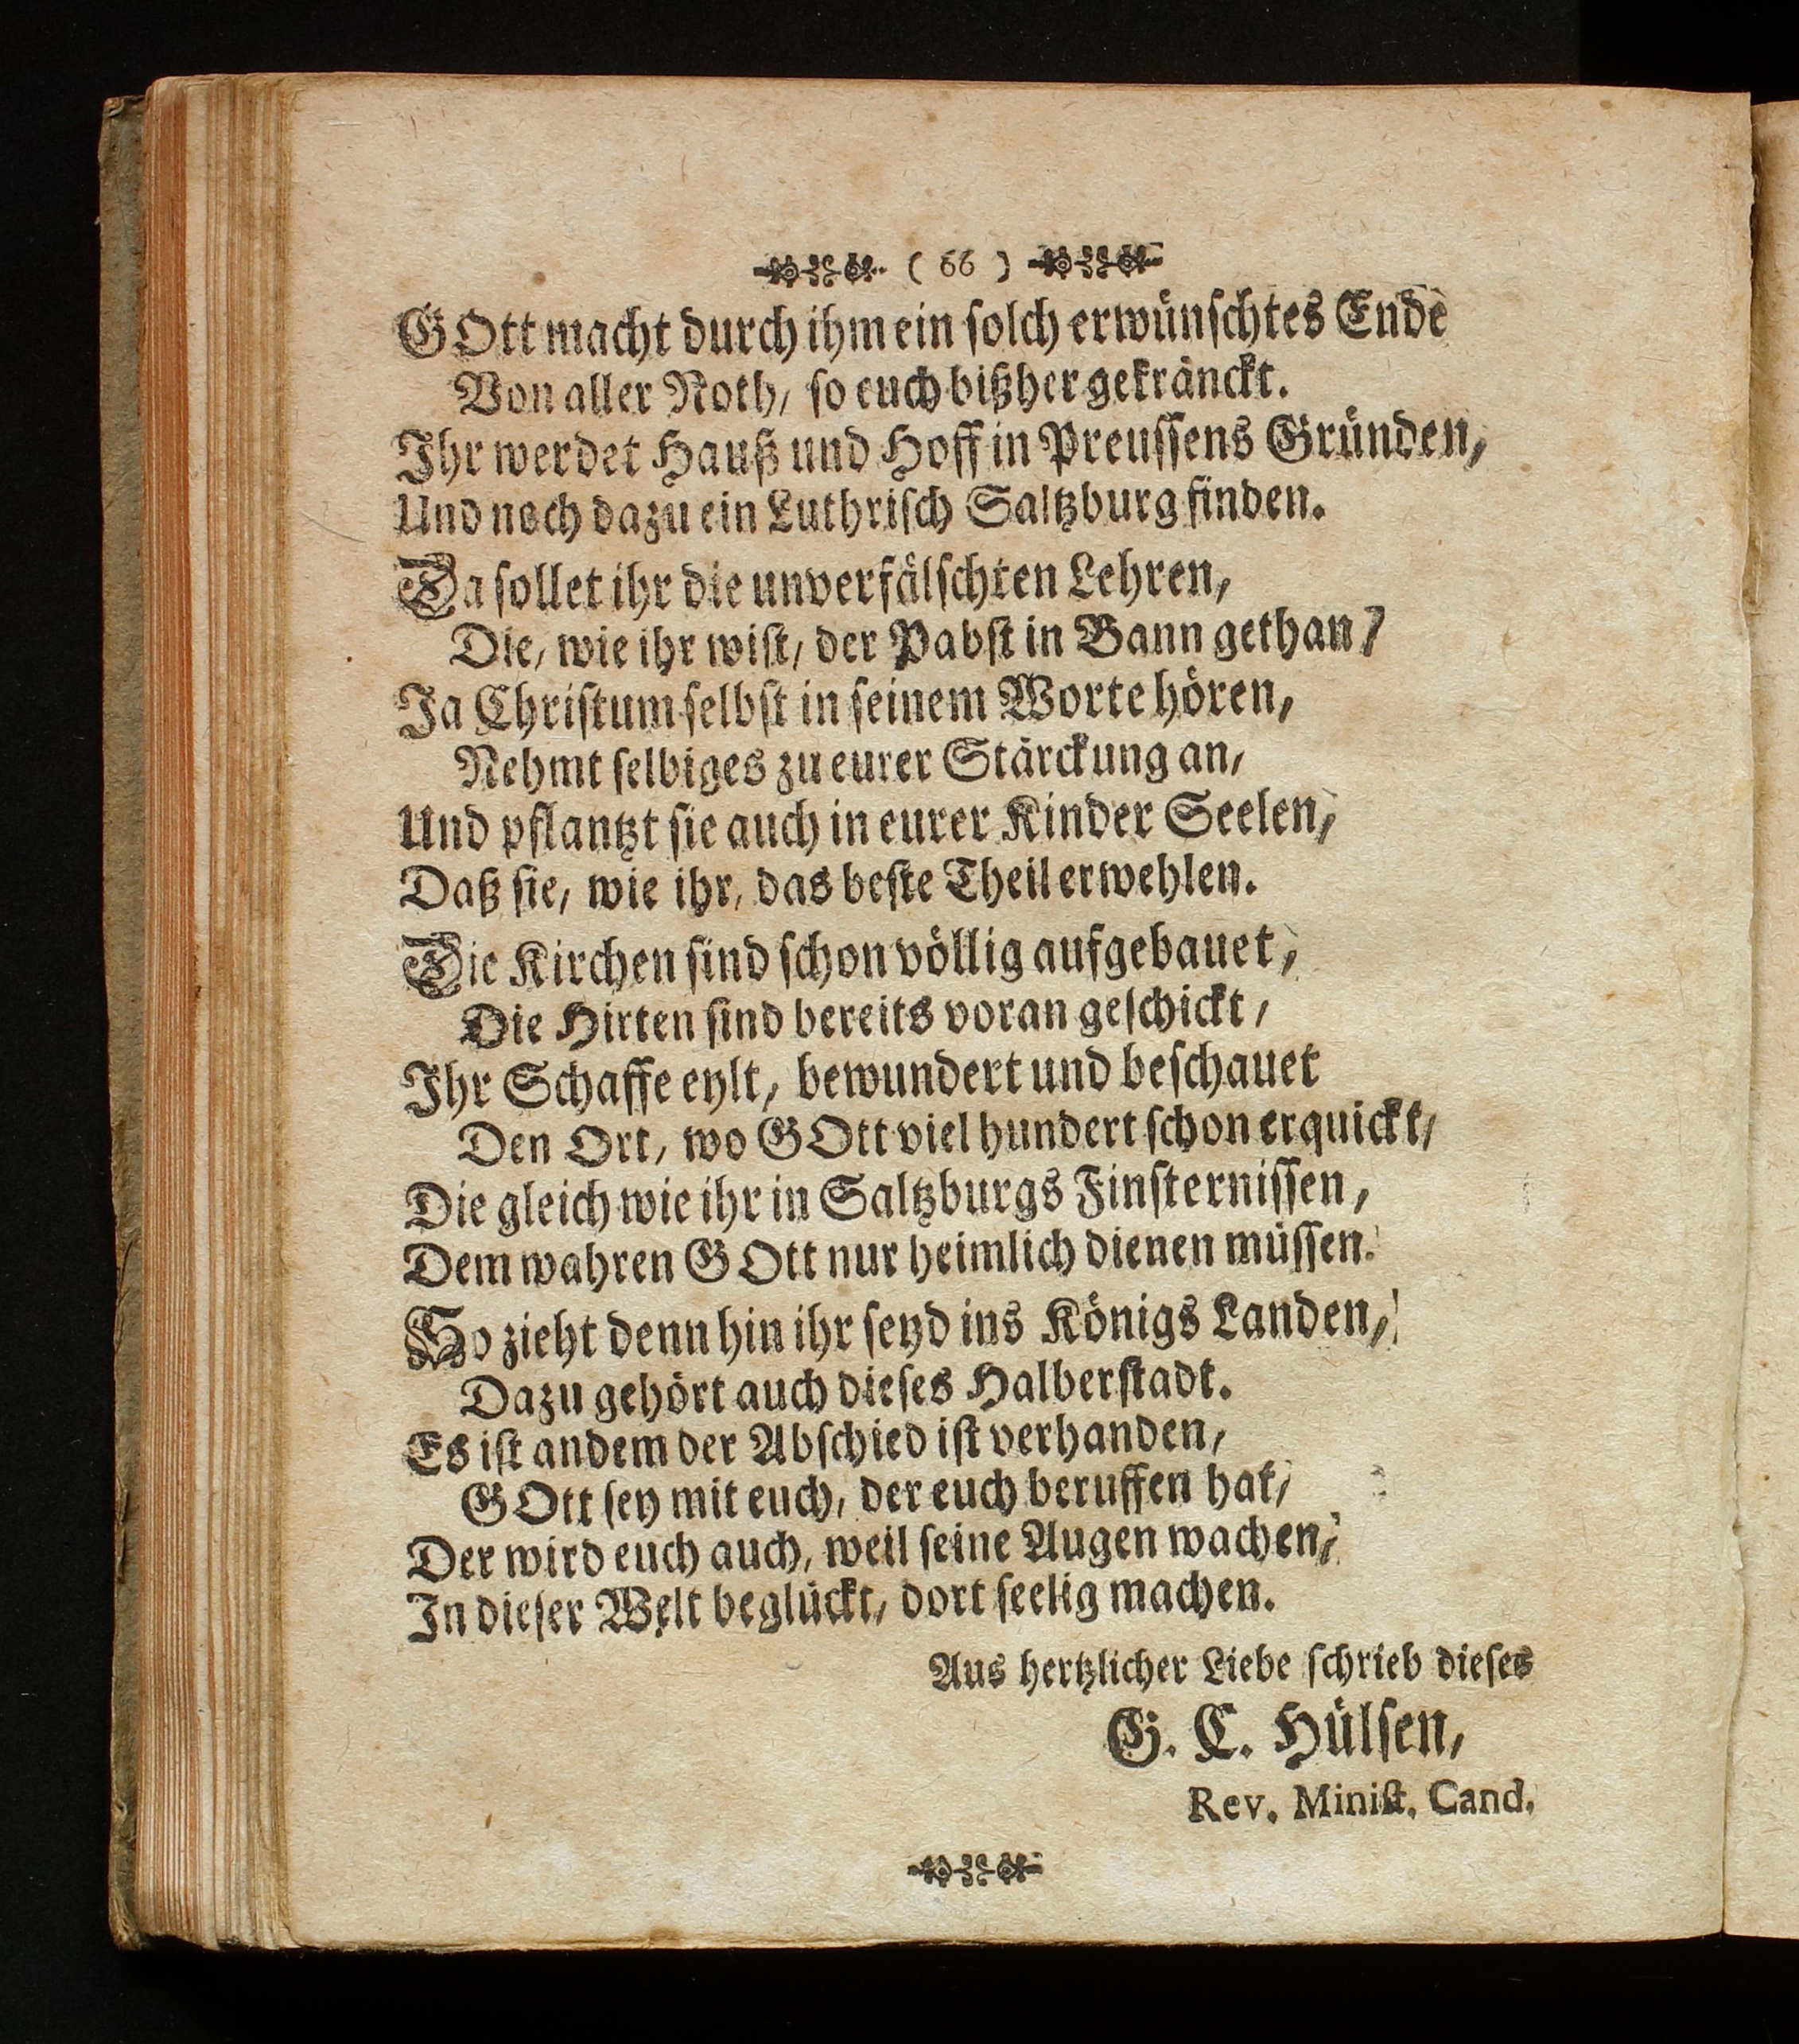 ( 66 )
GOtt macht durch ihm ein solch erwünschtes Ende
Von aller Noth, so euch bißher gekränckt.
Ihr werdet Hauß und Hoff in Preussens Gründen,
Und noch dazu ein Luthrisch Saltzburg finden.
Da sollet ihr die unverfälschten Lehren,
Die, wie ihr wist, der Pabst in Bann gethan,
Ja Christum selbst in seinem Worte hören,
Nehmt selbiges zu eurer Stärckung an,
Und pflantzt sie auch in eurer Kinder Seelen,
Daß sie, wie ihr, das beste Theil erwehlen.
Die Kirchen sind schon völlig aufgebauet,
Die Hirten sind bereits voran geschickt,
Ihr Schaffe eylt, bewundert und beschauet
Den Ort, wo GOtt viel hundert schon erquickt,
Die gleich wie ihr in Saltzburgs Finsternissen,
Dem wahren GOtt nur heimlich dienen müssen.
So zieht denn hin ihr seyd ins Königs Landen,
Dazu gehört auch dieses Halberstadt.
Es ist an dem der Abschied ist verhanden,
GOtt sey mit euch, der euch beruffen hat,
Der wird euch auch, weil seine Augen wachen,
In dieser Welt beglückt, dort seelig machen.
Aus hertzlicher Liebe schrieb dieses
G. C. Hülsen,
Rev. Minist. Cand.